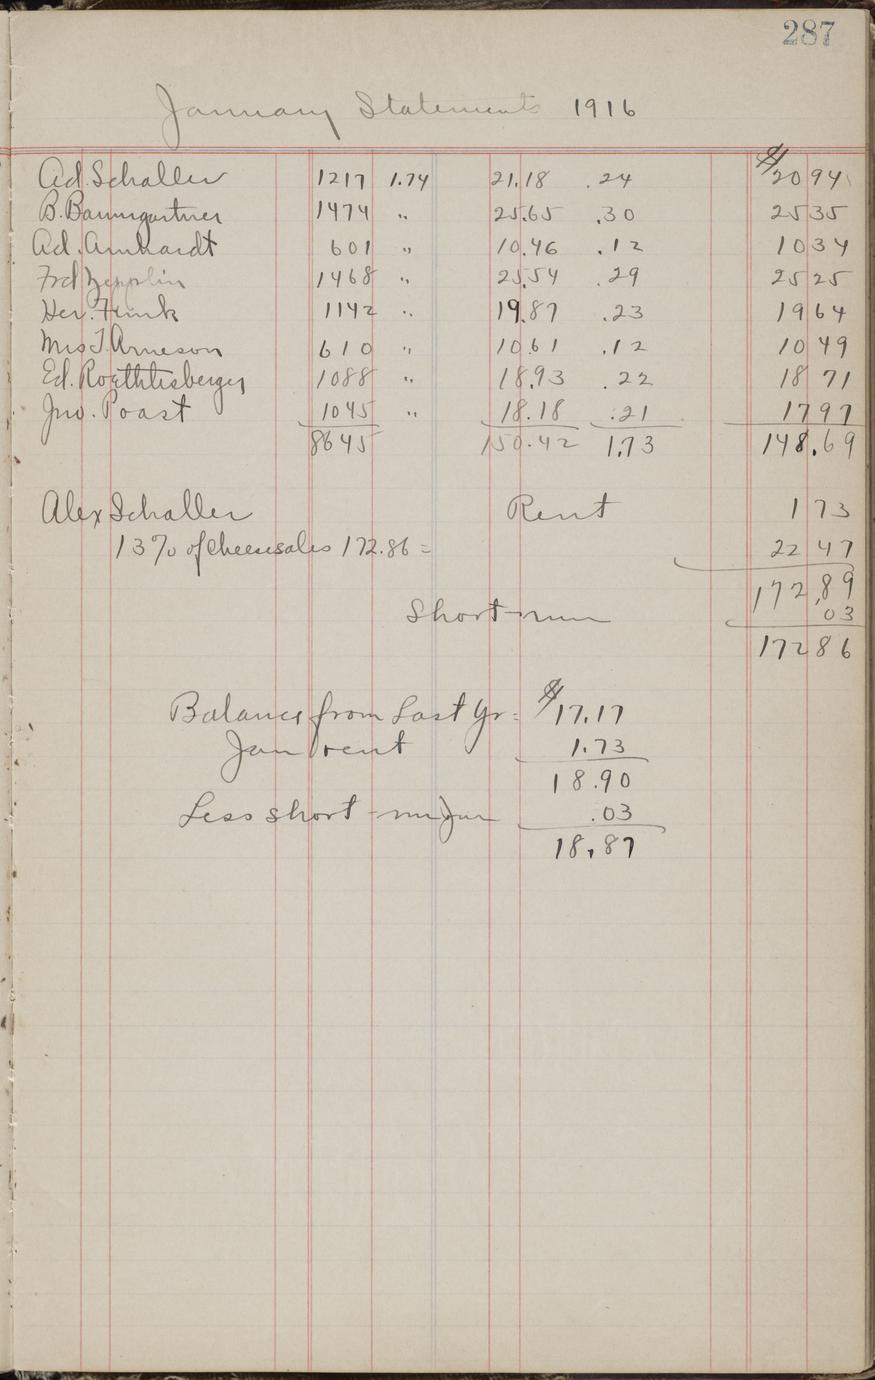 287
January Statements 1916
Ad. Schaller 1217 1.74 21.18 .24 $20 94
B. Baumgartner 1474 " 25.65 .30 25 35
Ad. Arnhardt 601 " 10.46 .12 10 34
Frd Zepplin 1468 " 25.54 .29 25 25
Her. Fink 1142 " 19.87 .23 19 64
Mrs T. Arneson 610 " 10.61 .12 10 49
Ed. Roethlisberger 1088 " 18.93 .22 18 71
Jno. Poast 1045 " 18.18 .21 17 97
8645 150.42 1.73 148.69
Alex Schaller Rent 1 73
13% of cheese sales 172.86 = 22 47
172.89
Short-run 03
172 86
Balance from Last Yr = $17.17
Jan rent 1.73
18.90
Less short-run Jan .03
18.87